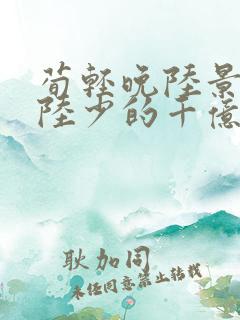 荀轻晚陆景
陆少的千亿
耿加同
未经同意禁止转载